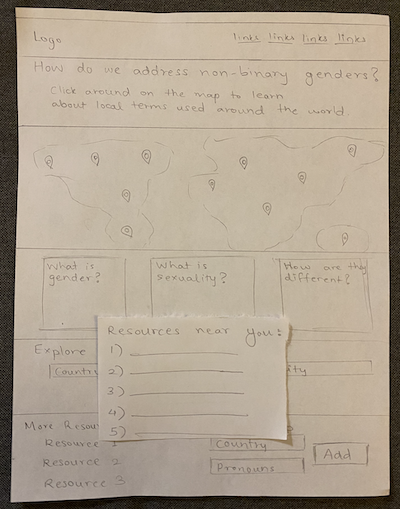 Logo
links links links links
How do we address non-binary genders?
Click around on the map to learn
about local terms used around the world.
What is
gender?
What is
sexuality?
How are they
different?
Resources near you:
1)
2)
3)
4)
5)
Explore
More
Resource
Country
Add
Resource 2
Pronouns
Resource 3